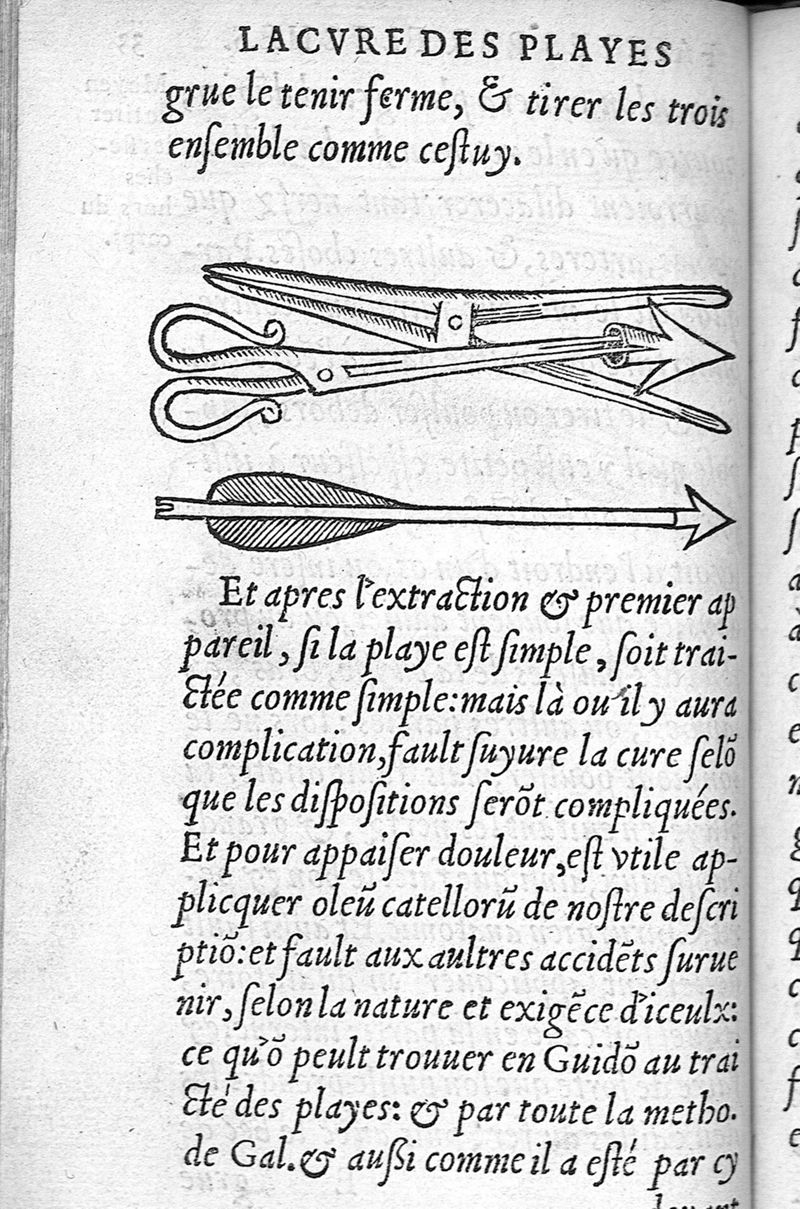 LA CVRE DES PLAYES
grue le tenir ferme, & tirer les trois
enſemble comme ceſtuy.
Et apres l'extraction & premier ap
pareil, ſi la playe eſt ſimple, ſoit trai-
ctée comme ſimple: mais là ou il y aura
complication, fault ſuyure la cure ſelõ
que les diſpoſitions ſerõt compliquées.
Et pour appaiſer douleur, eſt vtile ap-
plicquer oleũ catellorũ de noſtre deſcri
ptiõ: et fault aux aultres accidẽts ſurue
nir, ſelon la nature et exigẽce d'iceulx:
ce qu'õ peult trouuer en Guidõ au trai
cté des playes: & par toute la metho.
de Gal. & auſſi comme il a eſté par cy